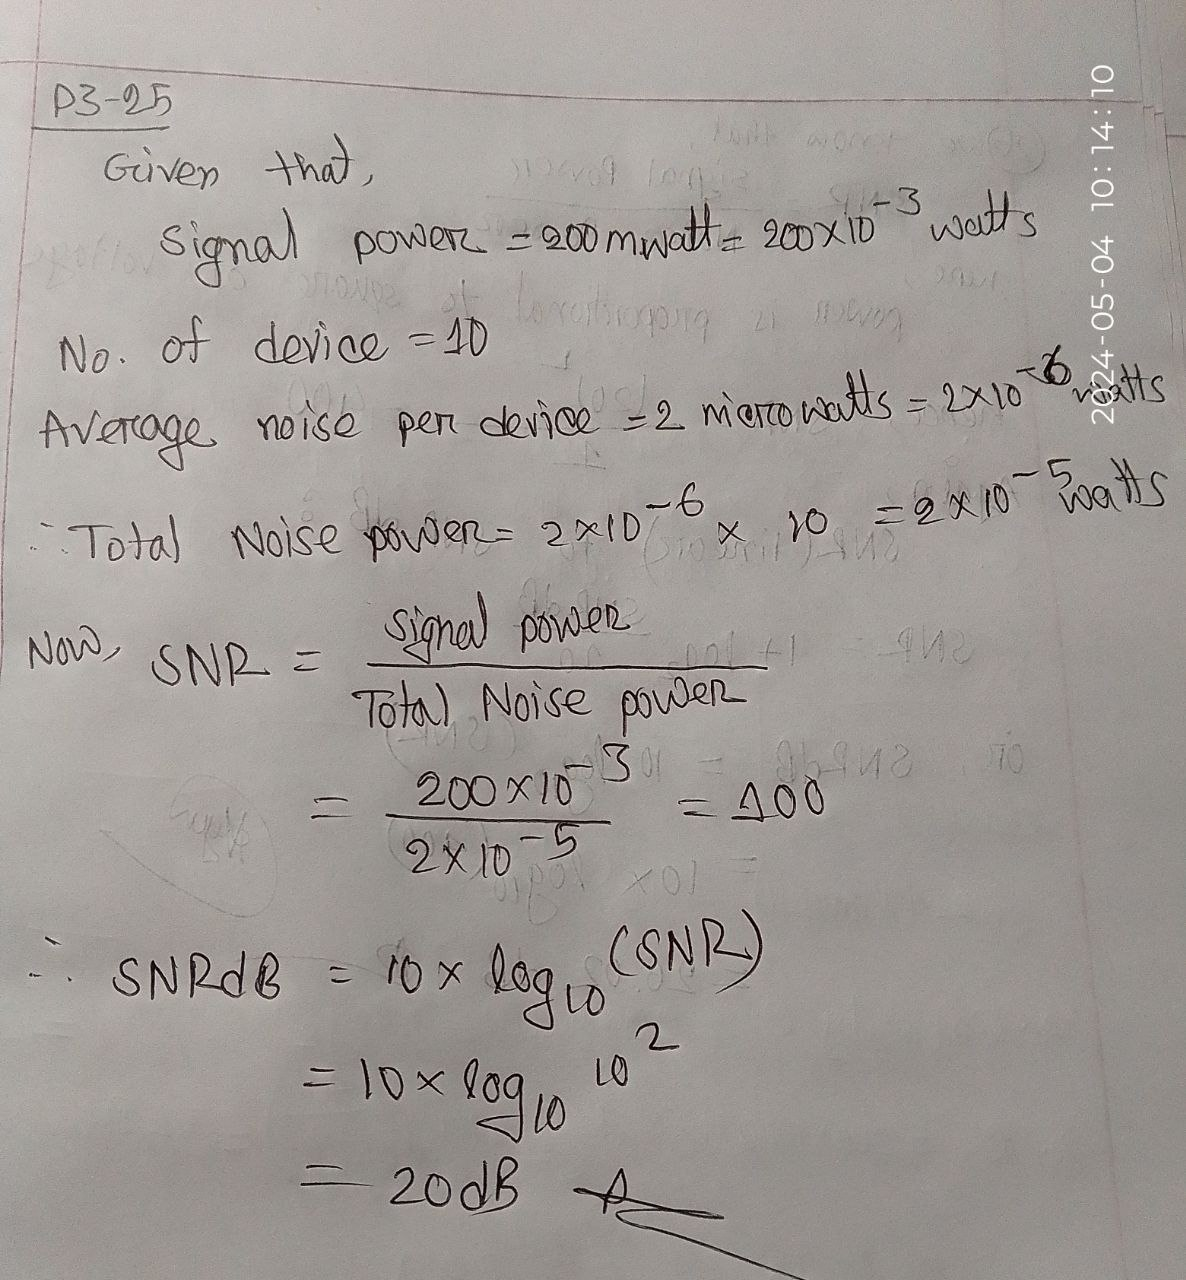 P3-25
Given that,
Signal power = 200 mwatt = 200×10⁻³ watts
No. of device = 10
Average noise per device = 2 micro watts = 2×10⁻⁶ watts
∴ Total Noise power = 2×10⁻⁶ × 10 = 2×10⁻⁵ watts
Now, SNR = Signal power
Total Noise power
= 200×10⁻³ = 100
2×10⁻⁵
∴ SNRdB = 10 × log₁₀ (SNR)
= 10 × log₁₀ 10²
= 20dB
2024-05-04 10:14:10